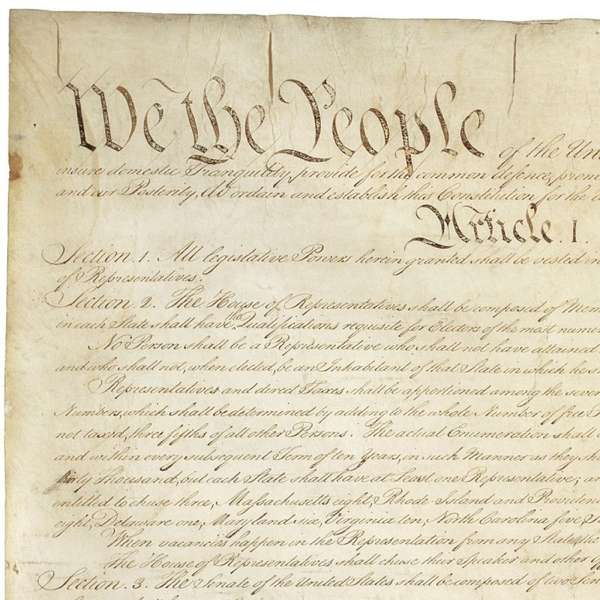 We the People of the Uni
insure domestic Tranquility, provide for the common defence, prom
and our Posterity, do ordain and establish this Constitution for the
Article. I.
Section. 1. All legislative Powers herein granted shall be vested in
of Representatives.
Section. 2. The House of Representatives shall be composed of Mem
in each State shall have the Qualifications requisite for Electors of the most numer
No Person shall be a Representative who shall not have attained
and who shall not, when elected, be an Inhabitant of that State in which he s
Representatives and direct Taxes shall be apportioned among the sever
Numbers, which shall be determined by adding to the whole Number of free P
not taxed, three fifths of all other Persons. The actual Enumeration shall
and within every subsequent Term of ten Years, in such Manner as they sh
thirty Thousand, but each State shall have at Least one Representative; a
entitled to chuse three, Massachusetts eight, Rhode Island and Providenc
eight, Delaware one, Maryland six, Virginia ten, North Carolina five, S
When vacancies happen in the Representation from any State, t
The House of Representatives shall chuse their Speaker and other O
Section. 3. The Senate of the United States shall be composed of two Sen